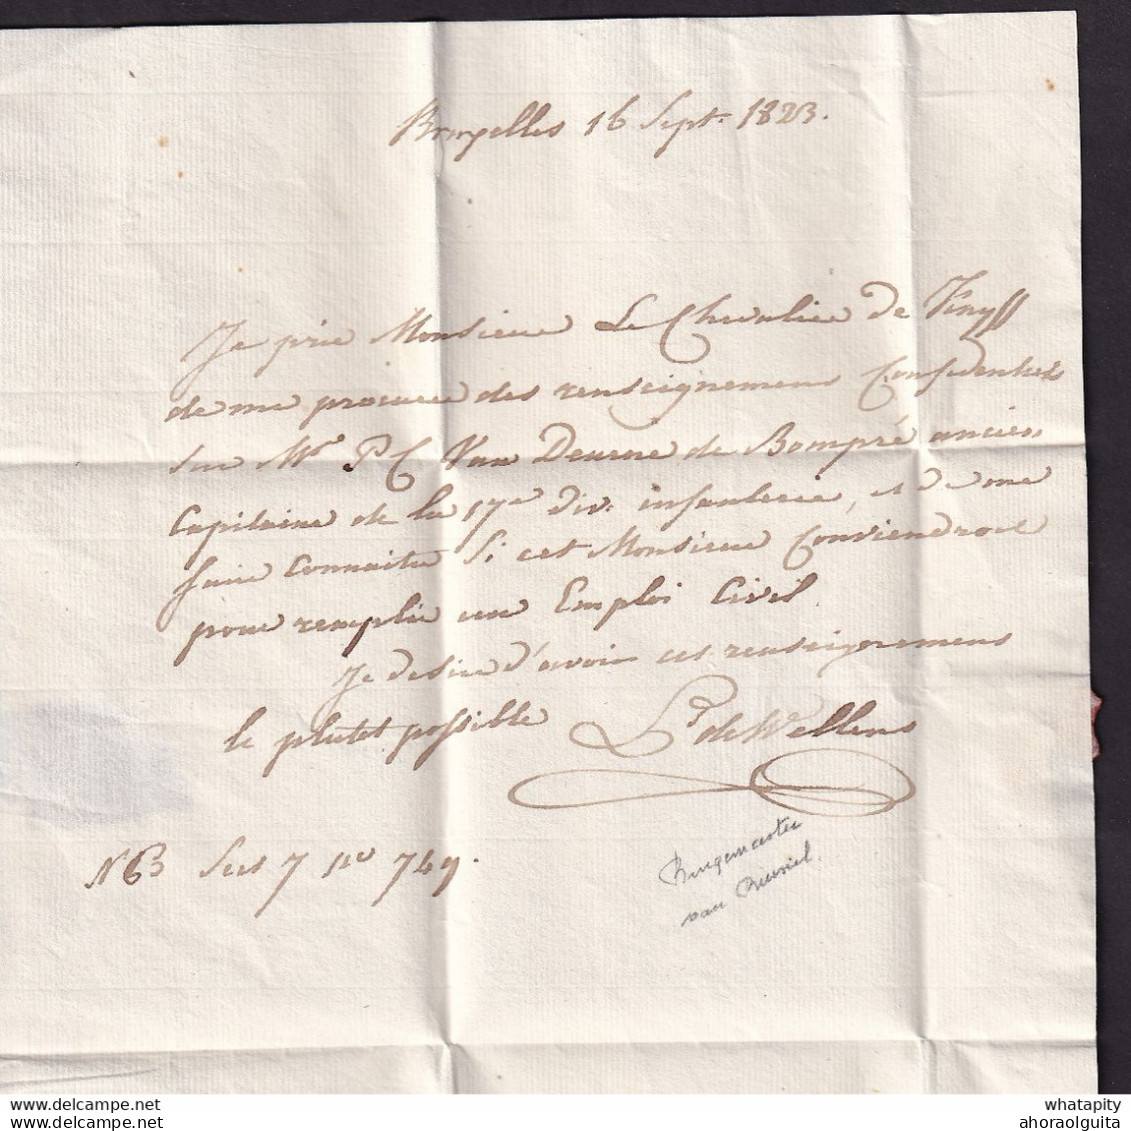 Bruxelles 16 Sept. 1823.
Je prie Monsieur Le Chevalier de
de me procurer des renseignemens Confidentiels
sur Mr P C Van Deurne de Bompré ancien
Capitaine de la 17e div. infanterie, et de me
faire Connaitre Si cet Monsieur Conviendroit
pour remplir un Emploi Civil.
Je desire d'avoir ces renseignemens
le plutot possible Lr de Wellens
N B Sect 7 No 749.
Burgemeester
van Brussel.
whatapity
ahoraolguita